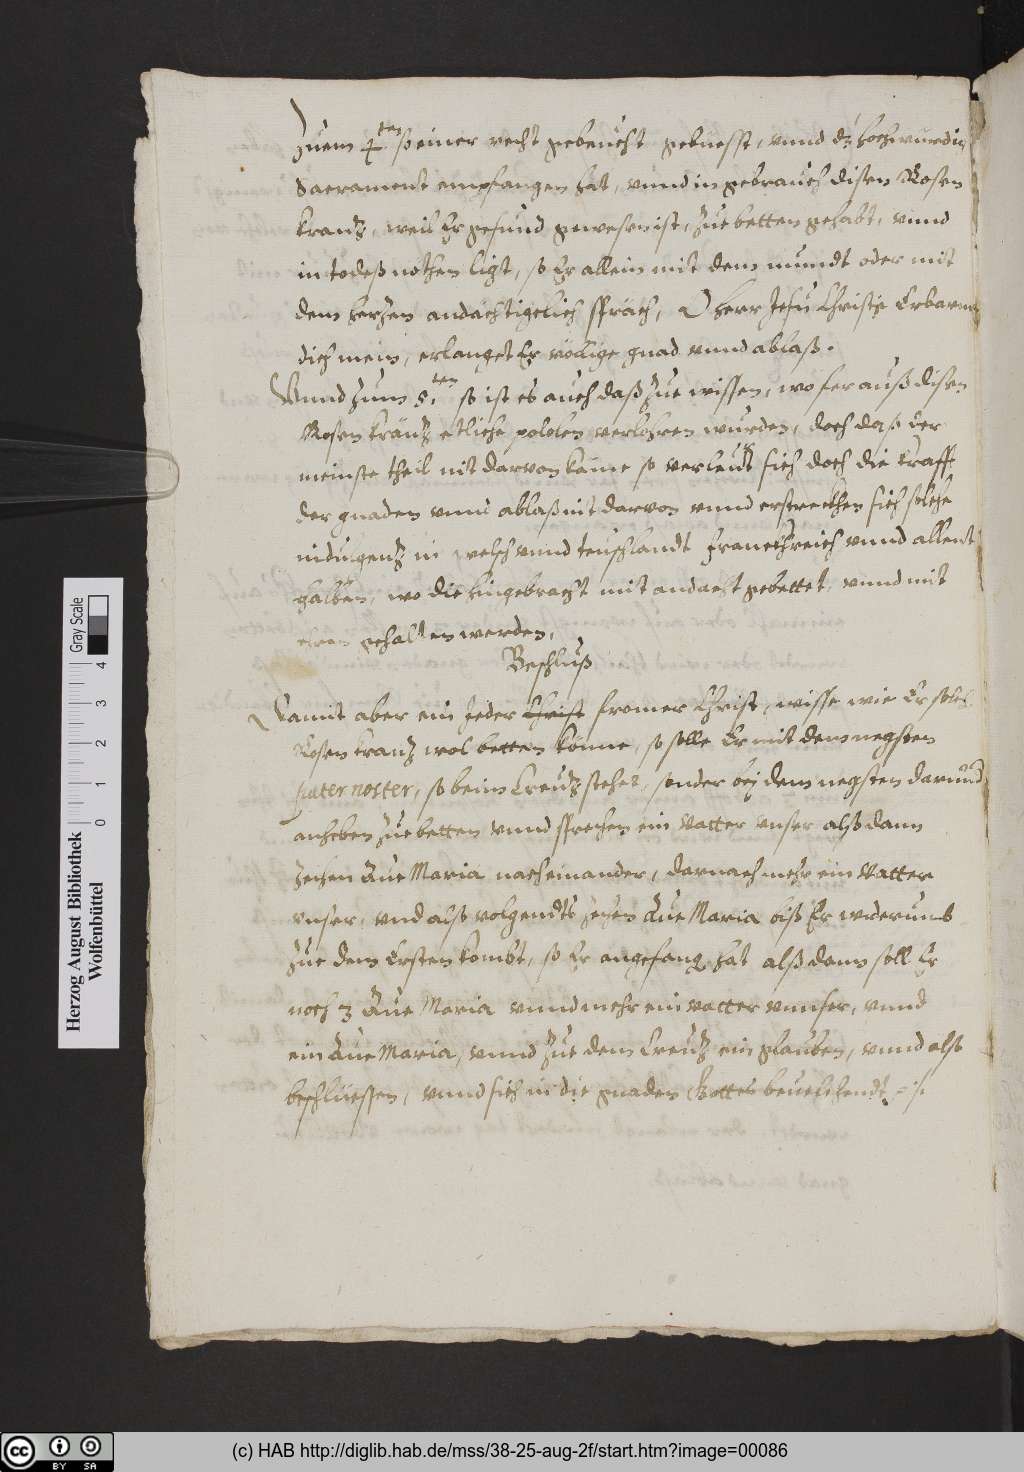 Zuem 4.ten so einer recht gebeucht gebuesst, vnnd dz hochwurdig
Sacrament empfangen hat, vnnd in gebrauch disen Rosen
krantz, weil Er gesund gewesen ist, zue betten gehabt, vnnd
in todeß nöthen ligt, so Er allein mit dem mundt oder mit
dem herzen andächtigelich spräch, O herr Jesu Christe Erbarme
dich mein, erlanget Er völlige gnad vnnd ablaß.
Vnnd zum 5.ten so ist es auch daß zue wissen, wo fer auß disen
Rosen krantz etliche pollen verlohren wurden, doch daß der
meinste theil nit darvon käme so verleurt sich doch die krafft
der gnaden vnnd ablaß nit darvon vnnd erstreckhen sich solche
indulgentz in welsch vnnd teutschlandt franckhreich vnnd allent
halben, wo die hingebracht mit andacht gebettet, vnnd mit
ehren gehalten werden.
Beschluß
Damit aber ein Jeder Christ fromer Christ, wisse wie Er solch
Rosen krantz wol betten könne, so solle Er mit dem negsten
pater noster, so beim Creutz stehet, sonder bej dem negsten darumb
anheben zue betten vnnd sprechen ein Vatter vnser alß dann
zechen Aue Maria nacheinander, darnach mehr ein Vatter
vnser, vnd alß volgendts zechen Aue Maria biß Er widerumb
zue dem Ersten kombt, so Er angefang hat alß dann soll Er
noch 3 Aue Maria vnnd mehr ein vatter vnnser, vnnd
ein Aue Maria, vnnd zue dem Creutz ein glauben, vnnd alß
beschliessen, vnnd sich in die gnaden Gottes beuelchendt
Herzog August Bibliothek
Wolfenbüttel
0 1 2 3 4
Gray Scale
cc BY SA
(c) HAB http://diglib.hab.de/mss/38-25-aug-2f/start.htm?image=00086